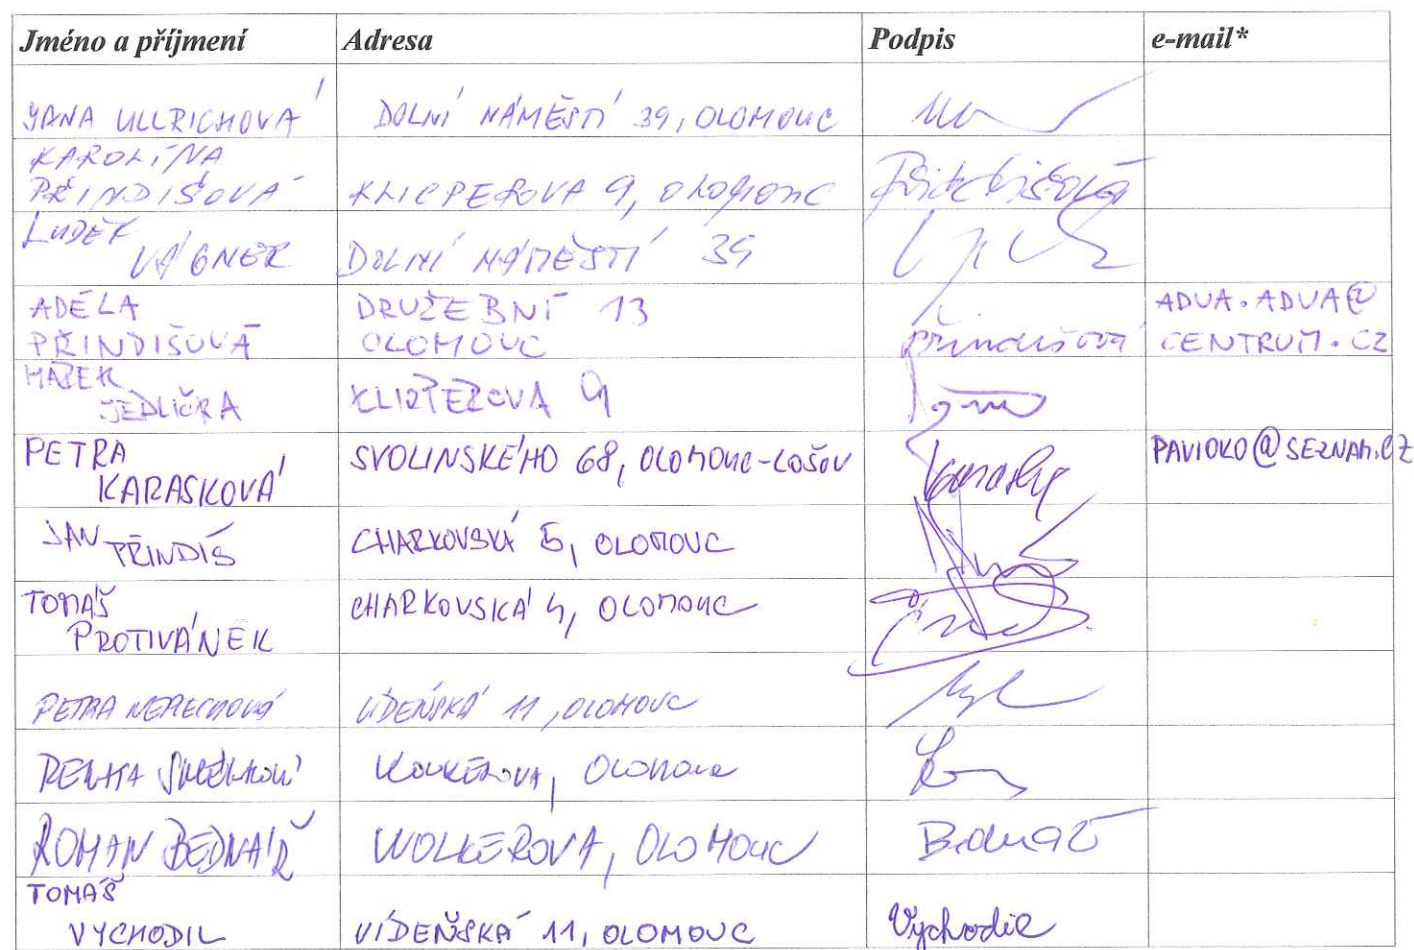 Jméno a příjmení Adresa Podpis e-mail*
JANA ULLRICHOVÁ DOLNÍ NÁMĚSTÍ 39, OLOMOUC
KAROLÍNA
PŘINDIŠOVÁ KLICPEROVA 9, OLOMOUC
LUDĚK
VÁGNER DOLNÍ NÁMĚSTÍ 39
ADÉLA DRUŽEBNÍ 13 ADUA.ADUA@
PŘINDIŠOVÁ OLOMOUC Přindišová CENTRUM.CZ
MAREK
JEDLIČKA KLICPEROVA 9
PETRA SVOLINSKÉHO 68, OLOMOUC-LOŠOV PAVIOKO@SEZNAM.CZ
KARASKOVÁ
JAN PŘINDIŠ CHARKOVSKÁ 5, OLOMOUC
TOMÁŠ CHARKOVSKÁ 4, OLOMOUC
PROTIVÁNEK
PETRA VÍDEŇSKÁ 11, OLOMOUC
RENATA OLOMOUC
ROMAN BEDNÁŘ WOLKEROVA, OLOMOUC Bednář
TOMÁŠ
VYCHODIL VÍDEŇSKÁ 11, OLOMOUC Vychodil